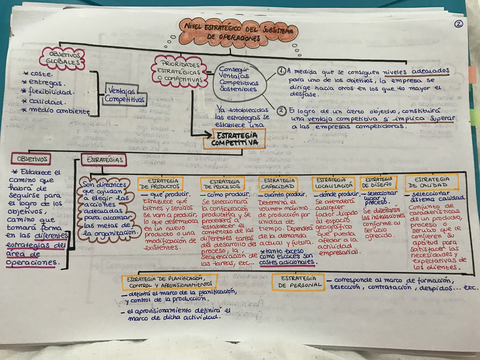 NIVEL ESTRATÉGICO DEL SUBSISTEMA
DE OPERACIONES
2
OBJETIVOS
GLOBALES
* coste.
* entregas.
* flexibilidad.
* calidad.
* medio ambiente
Ventajas
Competitivas
PRIORIDADES
ESTRATÉGICAS
O COMPETITIVAS
Conseguir
Ventajas
Competitivas
Sostenibles
① A medida que se consiguen niveles adecuados
para uno de los objetivos, la empresa se
dirige hacia otros en los que hay mayor el
desfase.
② El logro de un cierto objetivo, constituirá
una ventaja competitiva si implica superar
a las empresas competidoras.
Ya establecidas
las estrategias se
establece una
ESTRATEGIA
COMPETITIVA
OBJETIVOS
* Establece el
camino que
habrá de
seguirse para
el logro de los
objetivos,
camino que
tomará forma
en las diferentes
estrategias del
área de
operaciones.
ESTRATEGIAS
Son directrices
que ayudan
a elegir las
acciones
adecuadas
para alcanzar
las metas de
la organización
ESTRATEGIA
DE PRODUCTOS
- qué producir.
Establece qué
bienes y servicios
se van a producir,
lo que determina
en un nuevo
producto o una
modificación de
existentes.
ESTRATEGIA
DE PROCESOS
- cómo producir.
Se seleccionará
la configuración
productiva y de
procesos, y se
establecerá el
contenido de las
diferentes tareas
del desarrollo
actual y futuro, la
secuenciación de
las tareas, etc...
ESTRATEGIA
CAPACIDAD
- cuánto producir.
Determina el
volumen máximo
de producción
por unidad de
tiempo. Depende
de la demanda
actual y futura.
* tanto exceso
como escasez son
costes adicionales.
ESTRATEGIA
LOCALIZACIÓN
- dónde producir.
Se orientará
cualquier
lugar ligado al
espacio
geográfico que
pueda afectar
a la actividad
empresarial.
ESTRATEGIA
DE DISEÑO
- seleccionar
lugar y
precio
las instalaciones
servicio
ofrecido
ESTRATEGIA
DE CALIDAD
- seleccionar
sistema calidad
conjunto de
características
de un producto,
proceso o servicio
que le confieren
aptitud para
satisfacer las
necesidades y
expectativas de
los clientes.
ESTRATEGIA DE PLANIFICACIÓN,
CONTROL Y APROVISIONAMIENTOS
- definirá el marco de la planificación
y control de la producción.
- el aprovisionamiento definirá el
marco de dicha actividad.
ESTRATEGIA
DE PERSONAL
- corresponde al marco de formación,
selección, contratación, despidos... etc.